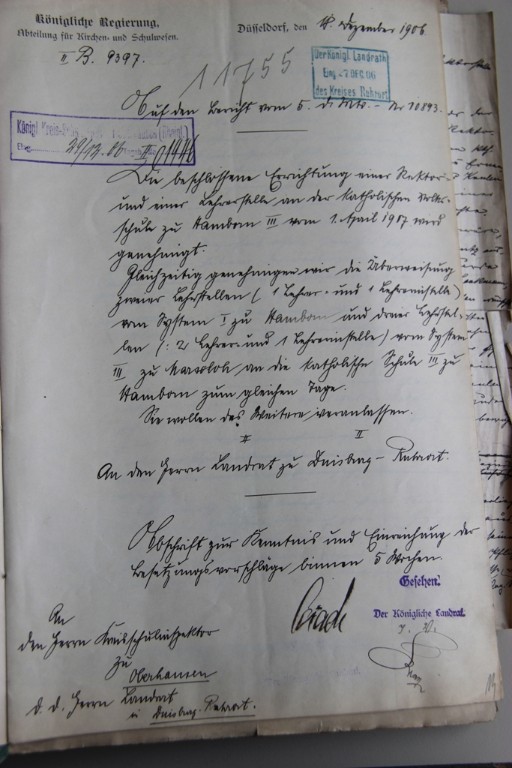 Königliche Regierung,
Abteilung für Kirchen- und Schulwesen.
II B. 9397.
Düsseldorf, den 18. Dezember 1906
11755
Der Königl. Landrath
Eing. 2 DEC. 06
des Kreises Ruhrort
Auf den Bericht vom 5. d. Mts. – Nr 10893.
Königl. Kreis-
29/12. 06
Die beschlossene Errichtung einer Rektor-
und einer Lehrerstelle an der katholischen Volks-
schule zu Hamborn III vom 1. April 1907 wird
genehmigt.
Gleichzeitig genehmigen wir die Überweisung
zweier Lehrstellen (1 Lehrer- und 1 Lehrerinstelle)
vom System I zu Hamborn und dreier Lehrstel-
len (: 2 Lehrer- und 1 Lehrerinstelle) vom System
III zu Marxloh, an die katholische Schule III zu
Hamborn zum gleichen Tage.
Sie wollen das Weitere veranlassen.
An den Herrn Landrat zu Duisburg-Ruhrort.
Abschrift zur Kenntnis und Einreichung der
Besetzungsvorschläge binnen 5 Wochen.
Gesehen:
Der Königliche Landrat.
J. V.
An
den Herrn Kreisschulinspektor
zu
Oberhausen
d. d. Herrn Landrat
in Duisburg-Ruhrort.